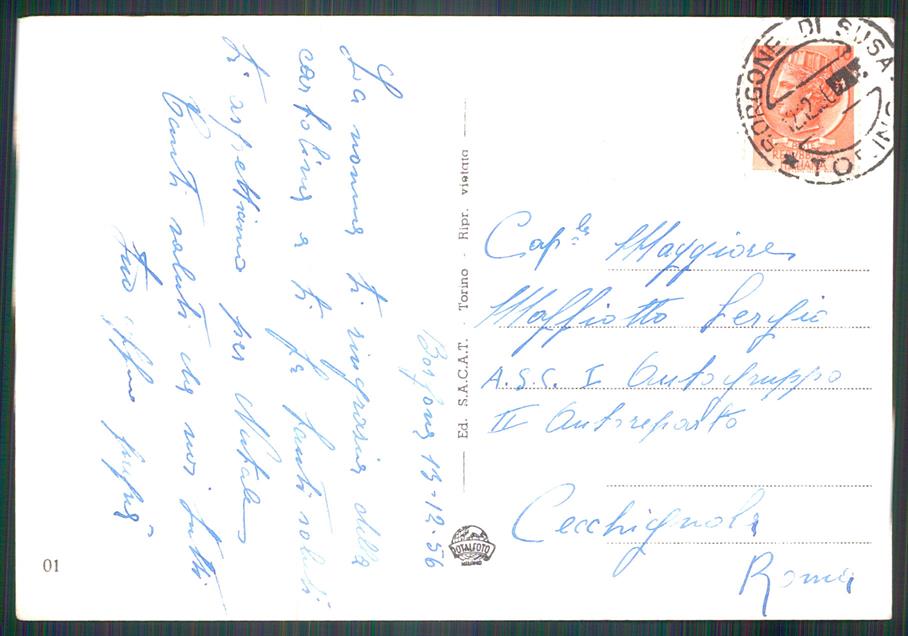 Borgone 13-12-56
La nonna ti ringrazia della
cartolina e ti fa tanti saluti
ti aspettiamo per Natale
Tanti saluti da noi tutti
tuo
Ed. S.A.C.A.T. - Torino - Ripr. vietata
ROTALFOTO
MILANO
01
BORGONE DI SUSA
* TORINO
REPUBBLICA
ITALIANA
Cap.le Maggiore
Maffiotto Sergio
A.S.C. I Autogruppo
II Autoreparto
Cecchignola
Roma